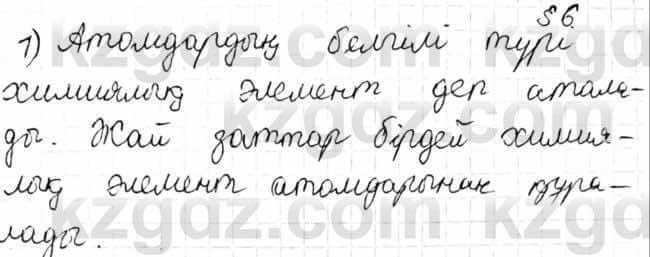 §6.
1) Атомдардың белгілі түрі
химиялық элемент деп атала-
ды. Жай заттар бірдей химия-
лық элемент атомдарынан құра-
лады.
kzgdz.com kzgdz.com
kzgdz.com kzgdz.com